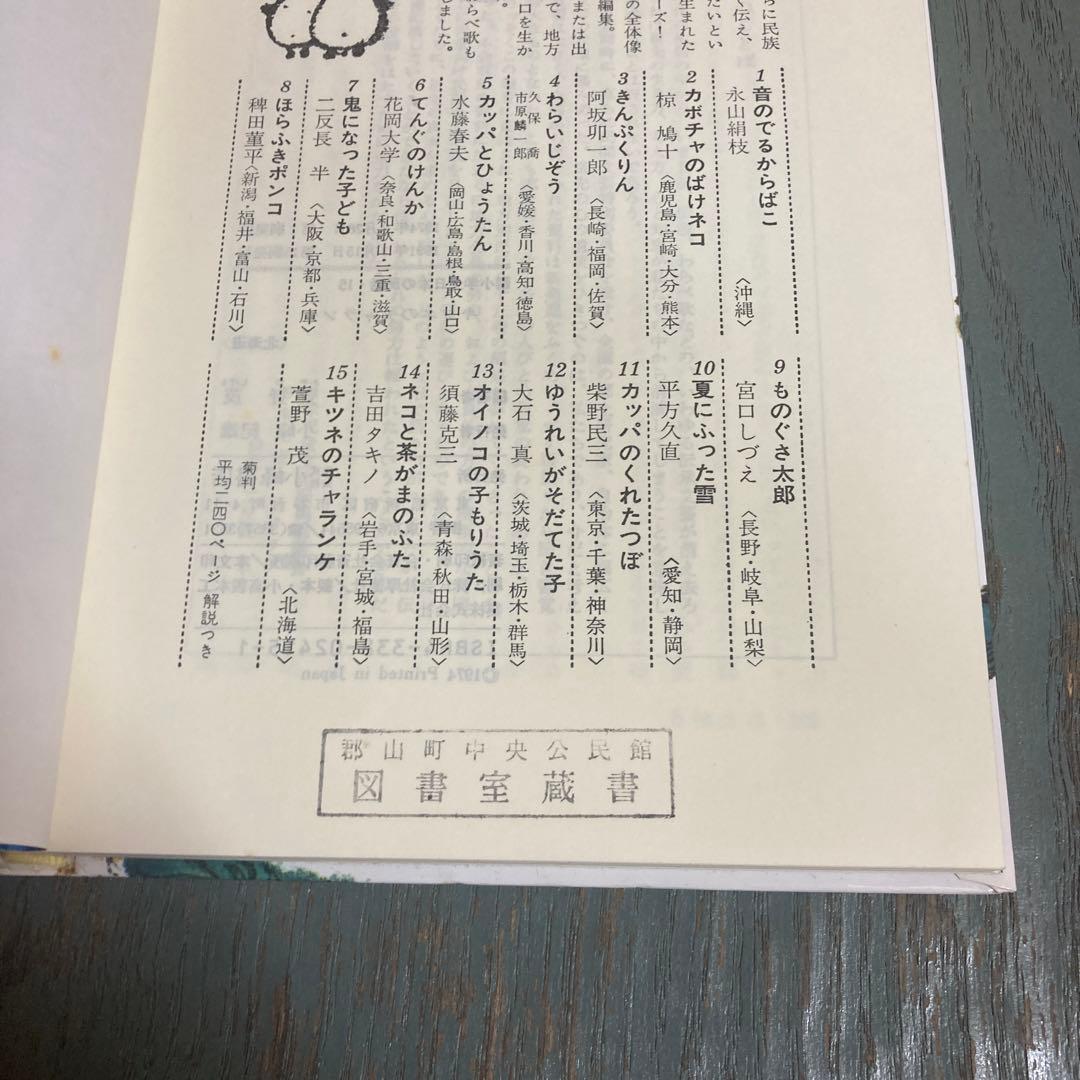 らに民族
く伝え、
たいとい
生まれた
ーズ！
の全体像
編集。
または出
で、地方
口を生か
らべ歌も
しました。
1 音のでるからばこ
永山絹枝 〈沖縄〉
2 カボチャのばけネコ
椋 鳩十 〈鹿児島・宮崎・大分・熊本〉
3 きんぷくりん
阿坂卯一郎 〈長崎・福岡・佐賀〉
4 わらいじぞう
久保 喬
市原麟一郎 〈愛媛・香川・高知・徳島〉
5 カッパとひょうたん
水藤春夫 〈岡山・広島・島根・鳥取・山口〉
6 てんぐのけんか
花岡大学 〈奈良・和歌山・三重・滋賀〉
7 鬼になった子ども
二反長 半 〈大阪・京都・兵庫〉
8 ほらふきポンコ
稗田菫平 〈新潟・福井・富山・石川〉
9 ものぐさ太郎
宮口しづえ 〈長野・岐阜・山梨〉
10 夏にふった雪
平方久直 〈愛知・静岡〉
11 カッパのくれたつぼ
柴野民三 〈東京・千葉・神奈川〉
12 ゆうれいがそだてた子
大石 真 〈茨城・埼玉・栃木・群馬〉
13 オイコの子もりうた
須藤克三 〈青森・秋田・山形〉
14 ネコと茶がまのふた
吉田タキノ 〈岩手・宮城・福島〉
15 キツネのチャランケ
萱野 茂 〈北海道〉
菊判
平均二四〇ページ 解説つき
郡山町中央公民館
図書室蔵書